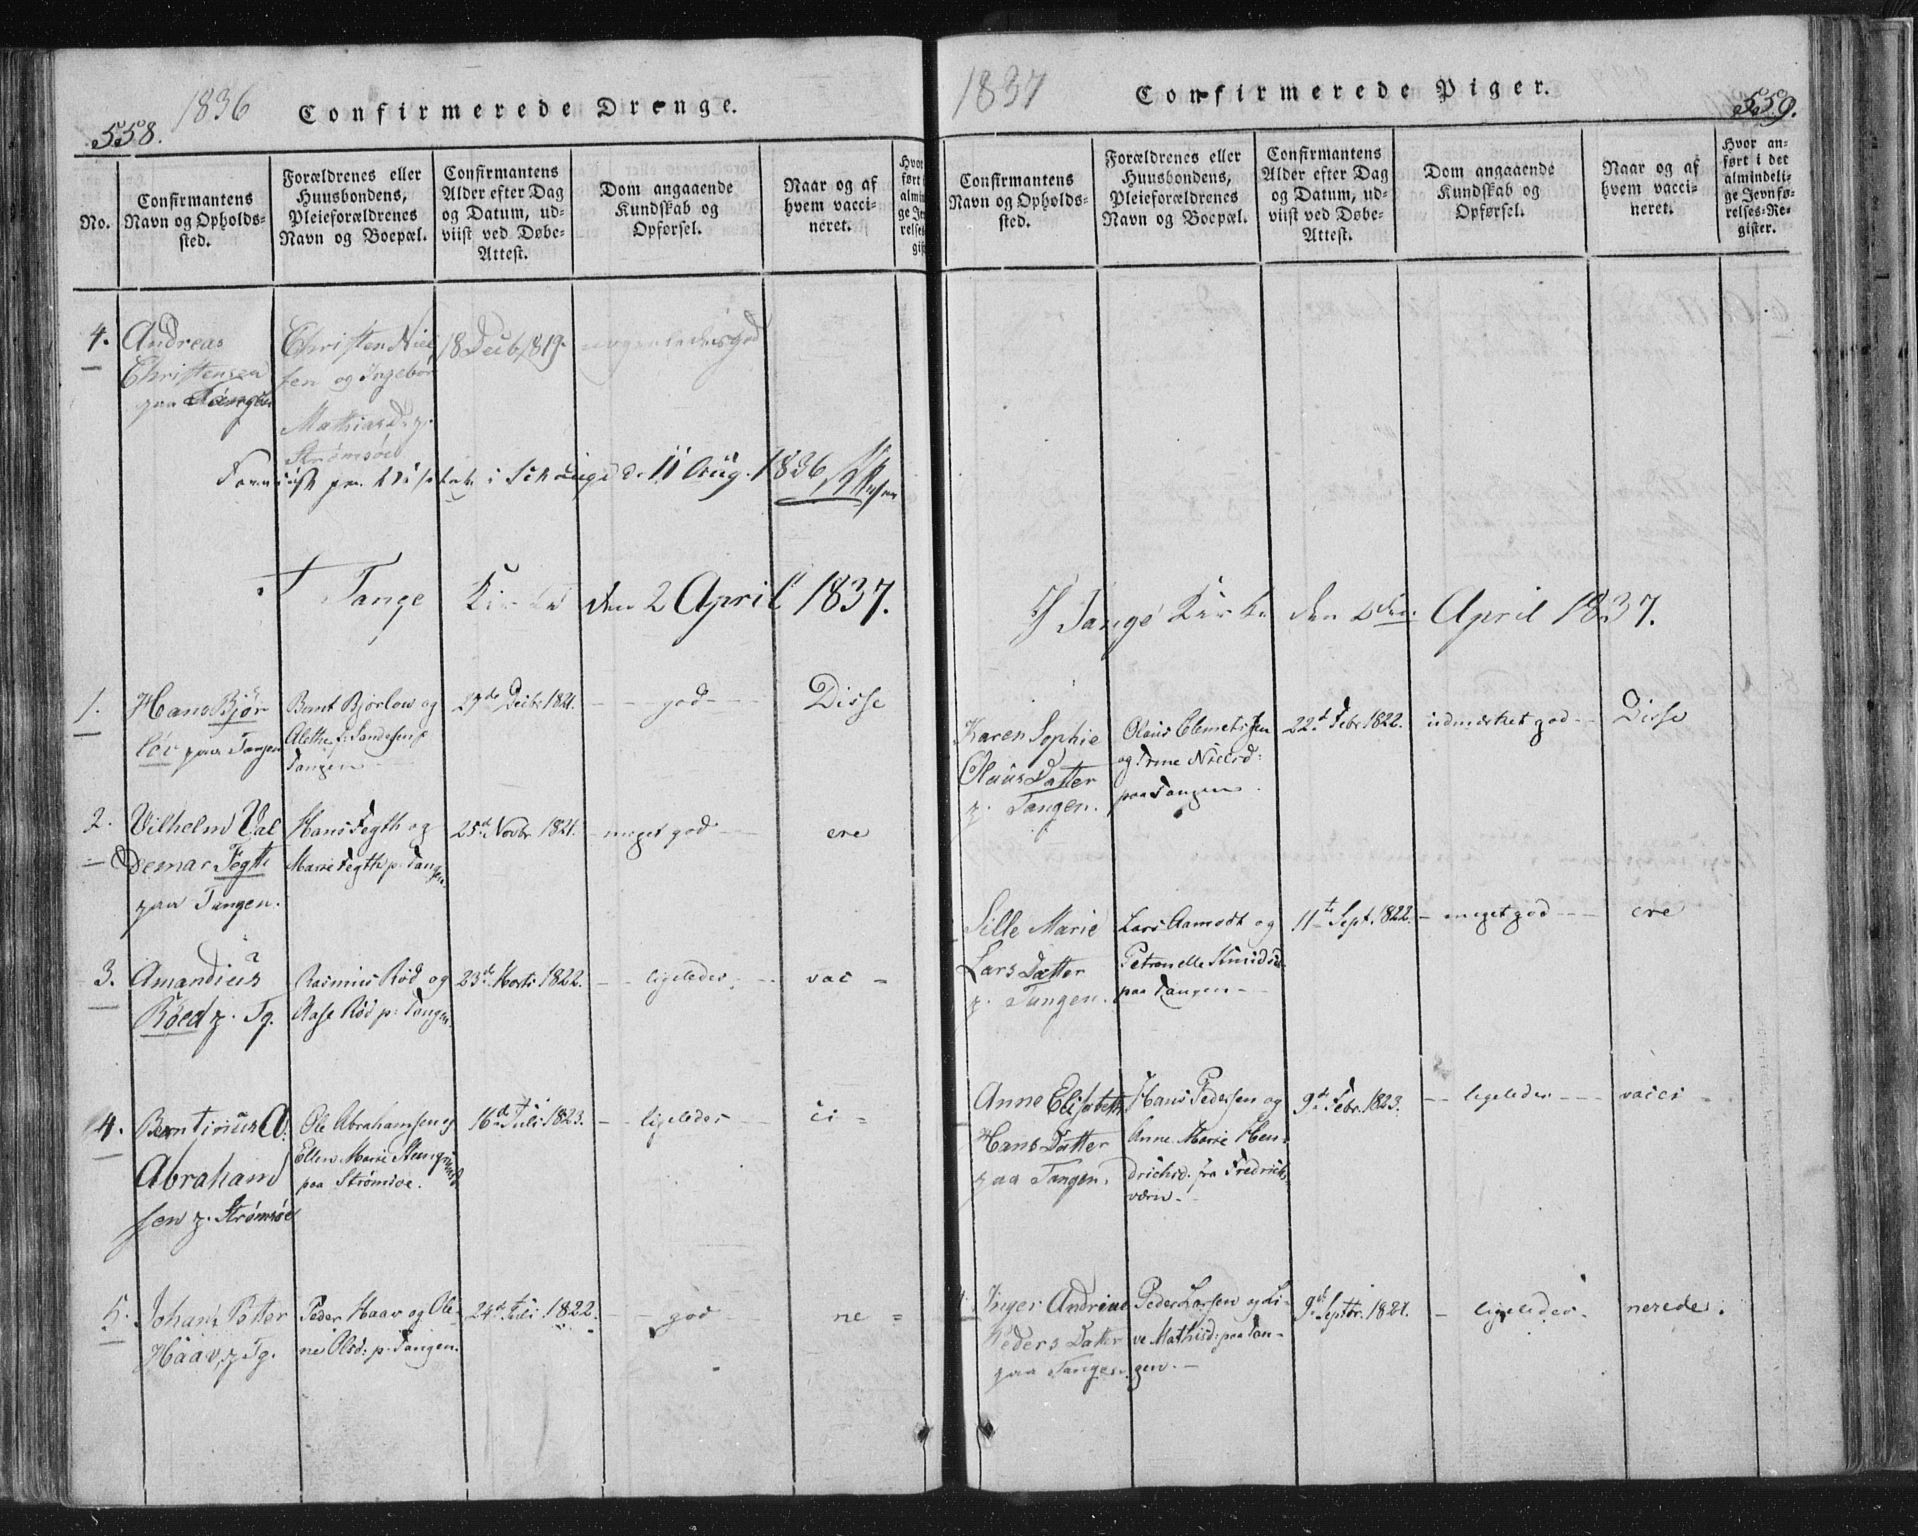 558.
1836
Confirmerede Drenge.
No.
Confirmantens
Navn og Opholds-
sted.
Forældrenes eller
Huusbondens,
Pleieforældrenes
Navn og Boepæl.
Confirmantens
Alder efter Dag
og Datum, ud-
viist ved Døbe-
Attest.
Dom angaaende
Kundskab og
Opførsel.
Naar og af
hvem vacci-
neret.
4.
Andreas
Christensen
paa
Christen Niel
sen og Ingebor
Mathiasd. p.
Strømsøe
18 Decb. 1819.
nogenledes god
11 Aug. 1836
I Tange Kirke den 2 April 1837.
1.
Hans Bjør
løv paa Tangen
Bernt Bjørlow og
Alethe
Tangen
29de Decbr 1821.
god
Disse
2.
Vilhelm Val
demar Fegth
paa Tangen.
Hans Fegth og
Marie Fegth p. Tangen
25de Novbr 1821.
meget god
ere
3.
Amandius
Røed p. Tg.
Rasmus Röd og
Aase Röd p: Tangen.
23de Marts 1822.
ligeledes
vac =
4.
Berntinius O.
Abraham
sen p. Strømsøe
Ole Abrahamsen og
Ellen Marie
paa Strömsoe.
16de Juli 1823.
ligeledes
ci =
5.
Johan Petter
Haav, p Tg.
Peder Haav og Ole-
ne Olsd: p. Tangen.
24de Juli 1822.
god
ne =
1837
Confirmerede Piger.
559.
Confirmantens
Navn og Opholds-
sted.
Forældrenes eller
Huusbondens,
Pleieforældrenes
Navn og Boepæl.
Confirmantens
Alder efter Dag
og Datum, ud-
viist ved Døbe-
Attest.
Dom angaaende
Kundskab og
Opførsel.
Naar og af
hvem vacci-
neret.
Hvor an-
ført i det
almindeli-
ge Jevnfø-
relses-Re-
gister.
I Tange Kirke den 2den April 1837.
Karen Sophie
Olaus Datter
p. Tangen.
Olaus Clemetsen
og Trine Nielsd:
paa Tangen.
22de Febr 1822.
udmærket god
Disse
Sille Marie
Lars Datter
p. Tangen.
Lars Aamodt og
Petronelle Knudsd.
paa Tangen
11te Sept. 1822.
meget god
ere
Anne Elisabeth
Hans Datter
paa Tangen.
Hans Pedersen og
Anne Marie Hen-
drichsd. fra Fredrichs
værn.
9de Febr. 1823.
ligeledes
vacci
Inger Andrine
Peders Datter
paa Tangen
Peder Larsen og Li-
ve Mathisd: paa Tan-
gen.
9de Septbr. 1821.
ligeledes
nerede.